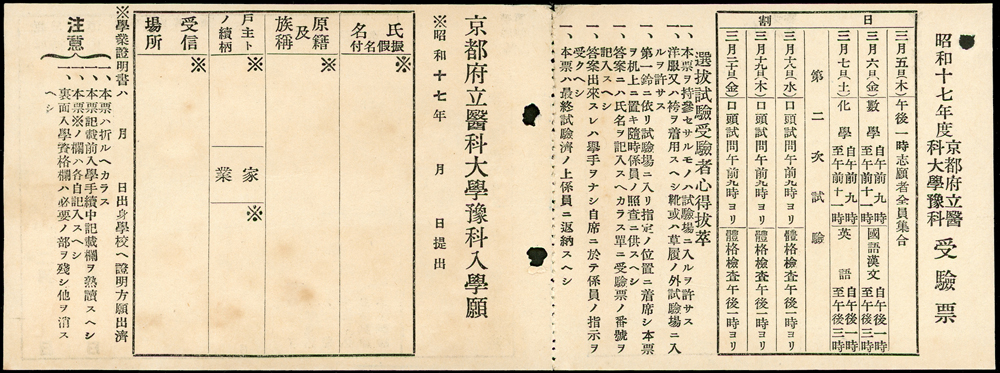 昭和十七年度 京都府立醫科大學豫科 受驗票
日割
三月五日(木) 午後一時志願者全員集合
三月六日(金) 數學 自午前九時 至午前十一時 國語漢文 自午後一時 至午後三時
三月七日(土) 化學 自午前九時 至午前十一時 英語 自午後一時 至午後三時
第二次試驗
三月十八日(水) 口頭試問午前九時ヨリ 體格檢査午後一時ヨリ
三月十九日(木) 口頭試問午前九時ヨリ 體格檢査午後一時ヨリ
三月二十日(金) 口頭試問午前九時ヨリ 體格檢査午後一時ヨリ
選拔試驗受驗者心得拔萃
一、本票ヲ持參セサルモノハ試驗場ニ入ルヲ許サス
一、洋服又ハ袴ヲ着用スヘシ靴或ハ草履ノ外試驗場ニ入
ルヲ許サス
一、第一鈴ニ依リ試驗場ニ入リ指定ノ位置ニ着席シ本票
ヲ机上ニ置キ隨時係員ノ照査ニ供スヘシ
一、答案ニハ氏名ヲ記入スヘカラス單ニ受驗票ノ番號ヲ
記入スヘシ
一、答案出來スレハ擧手ヲナシ自席ニ於テ係員ノ指示ヲ
受クヘシ
一、本票ハ最終試驗濟ノ上係員ニ返納スヘシ
京都府立醫科大學豫科入學願
※昭和十七年 月 日提出
氏名 振假名付 ※
原籍及族稱 ※
戸主トノ續柄 ※
家業 ※
受信場所 ※
※學業證明書ハ 月 日出身學校ヘ證明方願出濟
注意
一、本票ハ折ルヘカラス
一、本票記載前入學手續中記載欄ヲ熟讀スヘシ
一、本票※ノ欄ハ各自記入スヘシ
一、裏面入學資格欄ハ必要ノ部ヲ殘シ他ヲ消ス
ヘシ